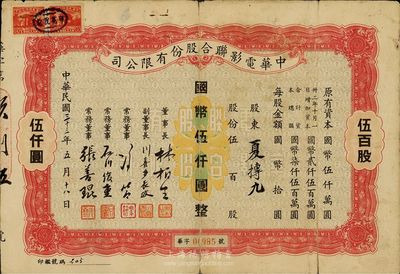 中華電影聯合股份有限公司
伍百股
伍仟圓
原有資本國幣伍仟萬圓
卅二年十月一日增加資本國幣貳仟伍百萬圓
合計資本總額國幣柒仟伍百萬圓
每股金額國幣拾圓
股東 夏摶九
股份 伍百股
國幣伍仟圓整
董事長 林柏生
副董事長 川喜多長政
常務董事 馮節
常務董事 石川俊重
常務董事 張善琨
中華民國三十三年五月十六日
華字 985 號
印鑑號碼